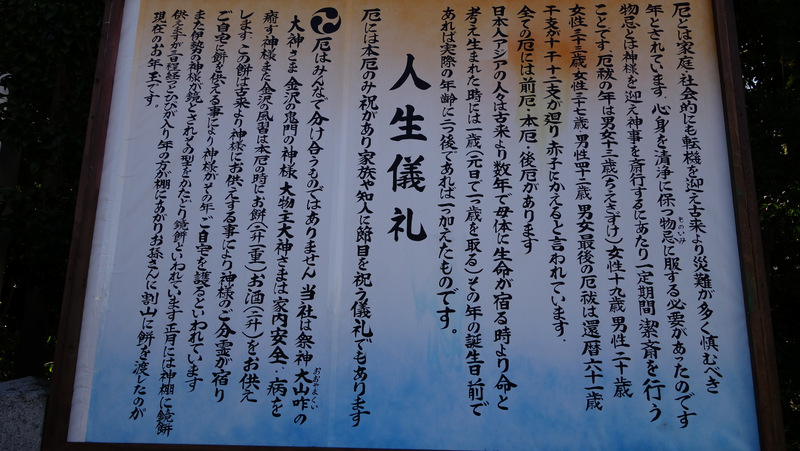 厄とは家庭・社会的にも転機を迎え古来より災難が多く慎むべき
年とされています。心身を清浄に保つ物忌に服する必要があったのです
ものいみ
物忌とは神様を迎え神事を斎行するにあたり一定期間 潔斎を行う
ことです。厄祓の年は男女十三歳(ちえさずけ)女性十九歳 男性二十歳
女性三十三歳 女性三十七歳 男性四十二歳 男女最後の厄祓は還暦六十一歳
干支が十干十二支が廻り赤子にかえると言われています。
全ての厄には前厄・本厄・後厄があります
日本人(アジアの人々は古来より数年で母体に生命が宿る時より命と
考え生まれた時には一歳(元日で一歳を取る)その年の誕生日前で
あれば実際の年齢に二つ後であれば一つ加えたものです。
人生儀礼
厄には本厄のみ祝があり家族や知人に節目を祝う儀礼でもあります
厄はみんなで分け合うものではありません 当社は祭神大山咋の
おおやまくい
大神さま 金沢の鬼門の神様 大物主大神さまは家内安全・病を
癒す神様 また金沢の風習は本厄の時にお餅(二升一重)お酒(二升)をお供え
します この餅は古来より神様にお供えする事により神様のご分霊が宿り
ご自宅に餅を供える事により神様がその年ご自宅を護るといわれています
また伊勢の神様が鏡とされその型をかたどり鏡餅といわれています 正月には神棚に鏡餅
供えますが一日程経つとひびが入り年の方が棚にあがりお孫さんに割山に餅を渡したのが
現在のお年玉です。